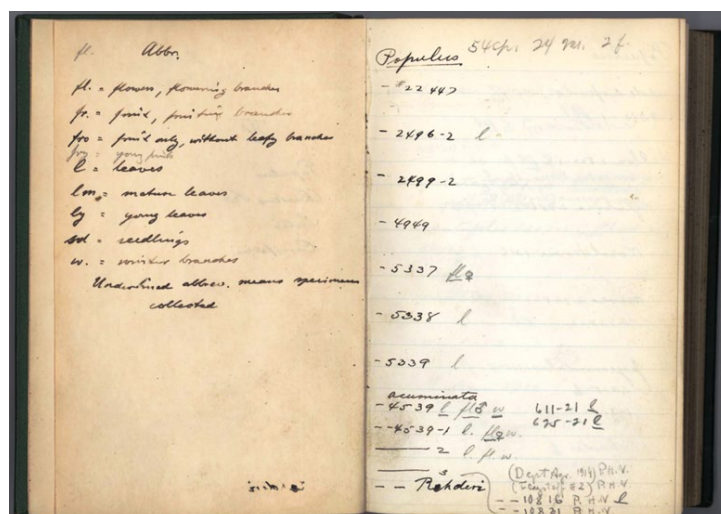 fl. Abbr.
fl. = flowers, flowering branches
fr. = fruit, fruiting branches
fro = fruit only, without leafy branches
fry = young fruit
l = leaves
lm = mature leaves
ly = young leaves
sd = seedlings
w. = winter branches
Underlined abbrev. means specimens
collected
54 sp. 24 var. 2 f.
Populus
- 22447
- 2496-2 l
- 2499-2
- 4949
- 5337 fl♀
- 5338 l
- 5339 l
acuminata
- 4539 l fl♂ w 611-21 l
625-21 l
- 4539-1 l. fl♀ w.
2 l. fl. w.
3
(Dept Agr. 1919) P.H.V.
- - Rehderi #2) P.H.V.
- - 10816 P.H.V. l
- - 10831 P.H.V.